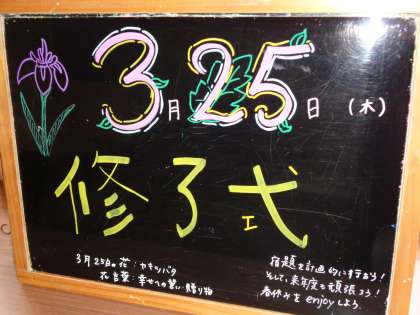 3月25日（木）
修了式
3月25日の花：カキツバタ
花言葉：幸せへの誓い 贈り物
宿題を計画的に行おう！
そして、来年度も頑張ろう！
春休みをenjoyしよう